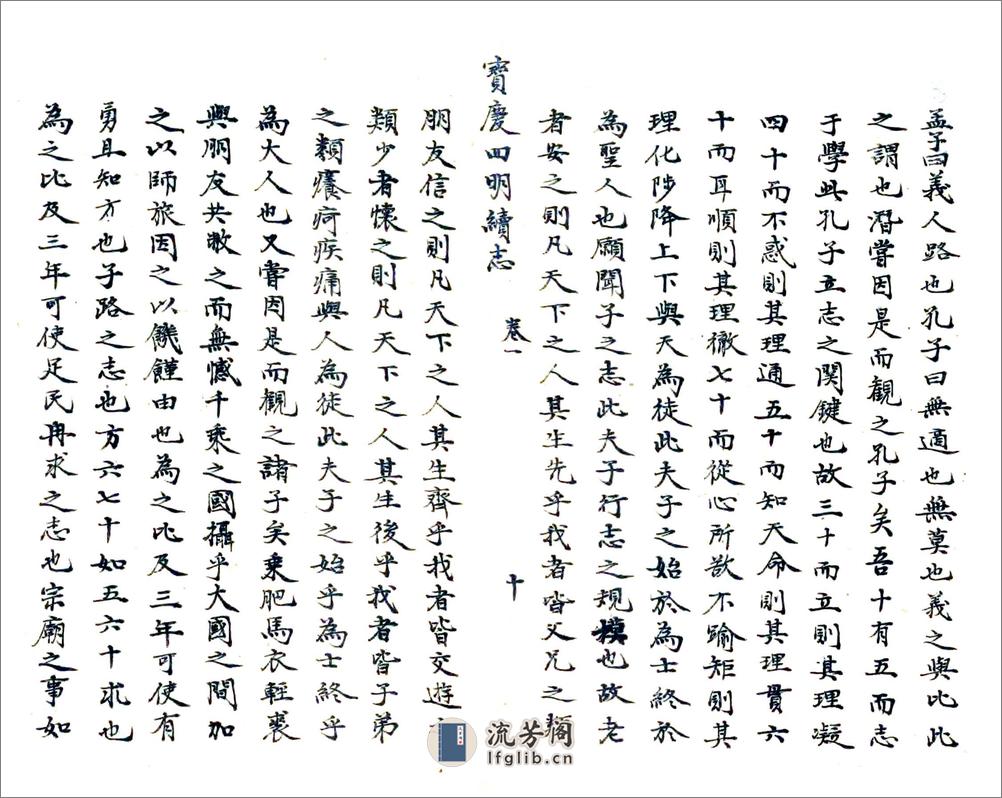 孟子曰義人路也孔子曰無適也無莫也義之與比此
之謂也潛嘗因是而觀之孔子矣吾十有五而志
于學此孔子立志之関鍵也故三十而立則其理凝
四十而不惑則其理通五十而知天命則其理貫六
十而耳順則其理徹七十而從心所欲不踰矩則其
理化陟降上下與天為徒此夫子之始於為士終於
為聖人也願聞子之志此夫子行志之規模也故老
者安之則凡天下之人其生先乎我者皆父兄之類
寳慶四明續志 卷一 十
朋友信之則凡天下之人其生齊乎我者皆交遊之
類少者懷之則凡天下之人其生後乎我者皆子弟
之類癢疴疾痛與人為徒此夫子之始乎為士終乎
為大人也又嘗因是而觀之諸子矣乗肥馬衣輕裘
與朋友共敝之而無憾千乘之國攝乎大國之間加
之以師旅因之以饑饉由也為之比及三年可使有
勇且知方也子路之志也方六七十如五六十求也
為之比及三年可使足民冉求之志也宗廟之事如
流芳阁
lfglib.cn